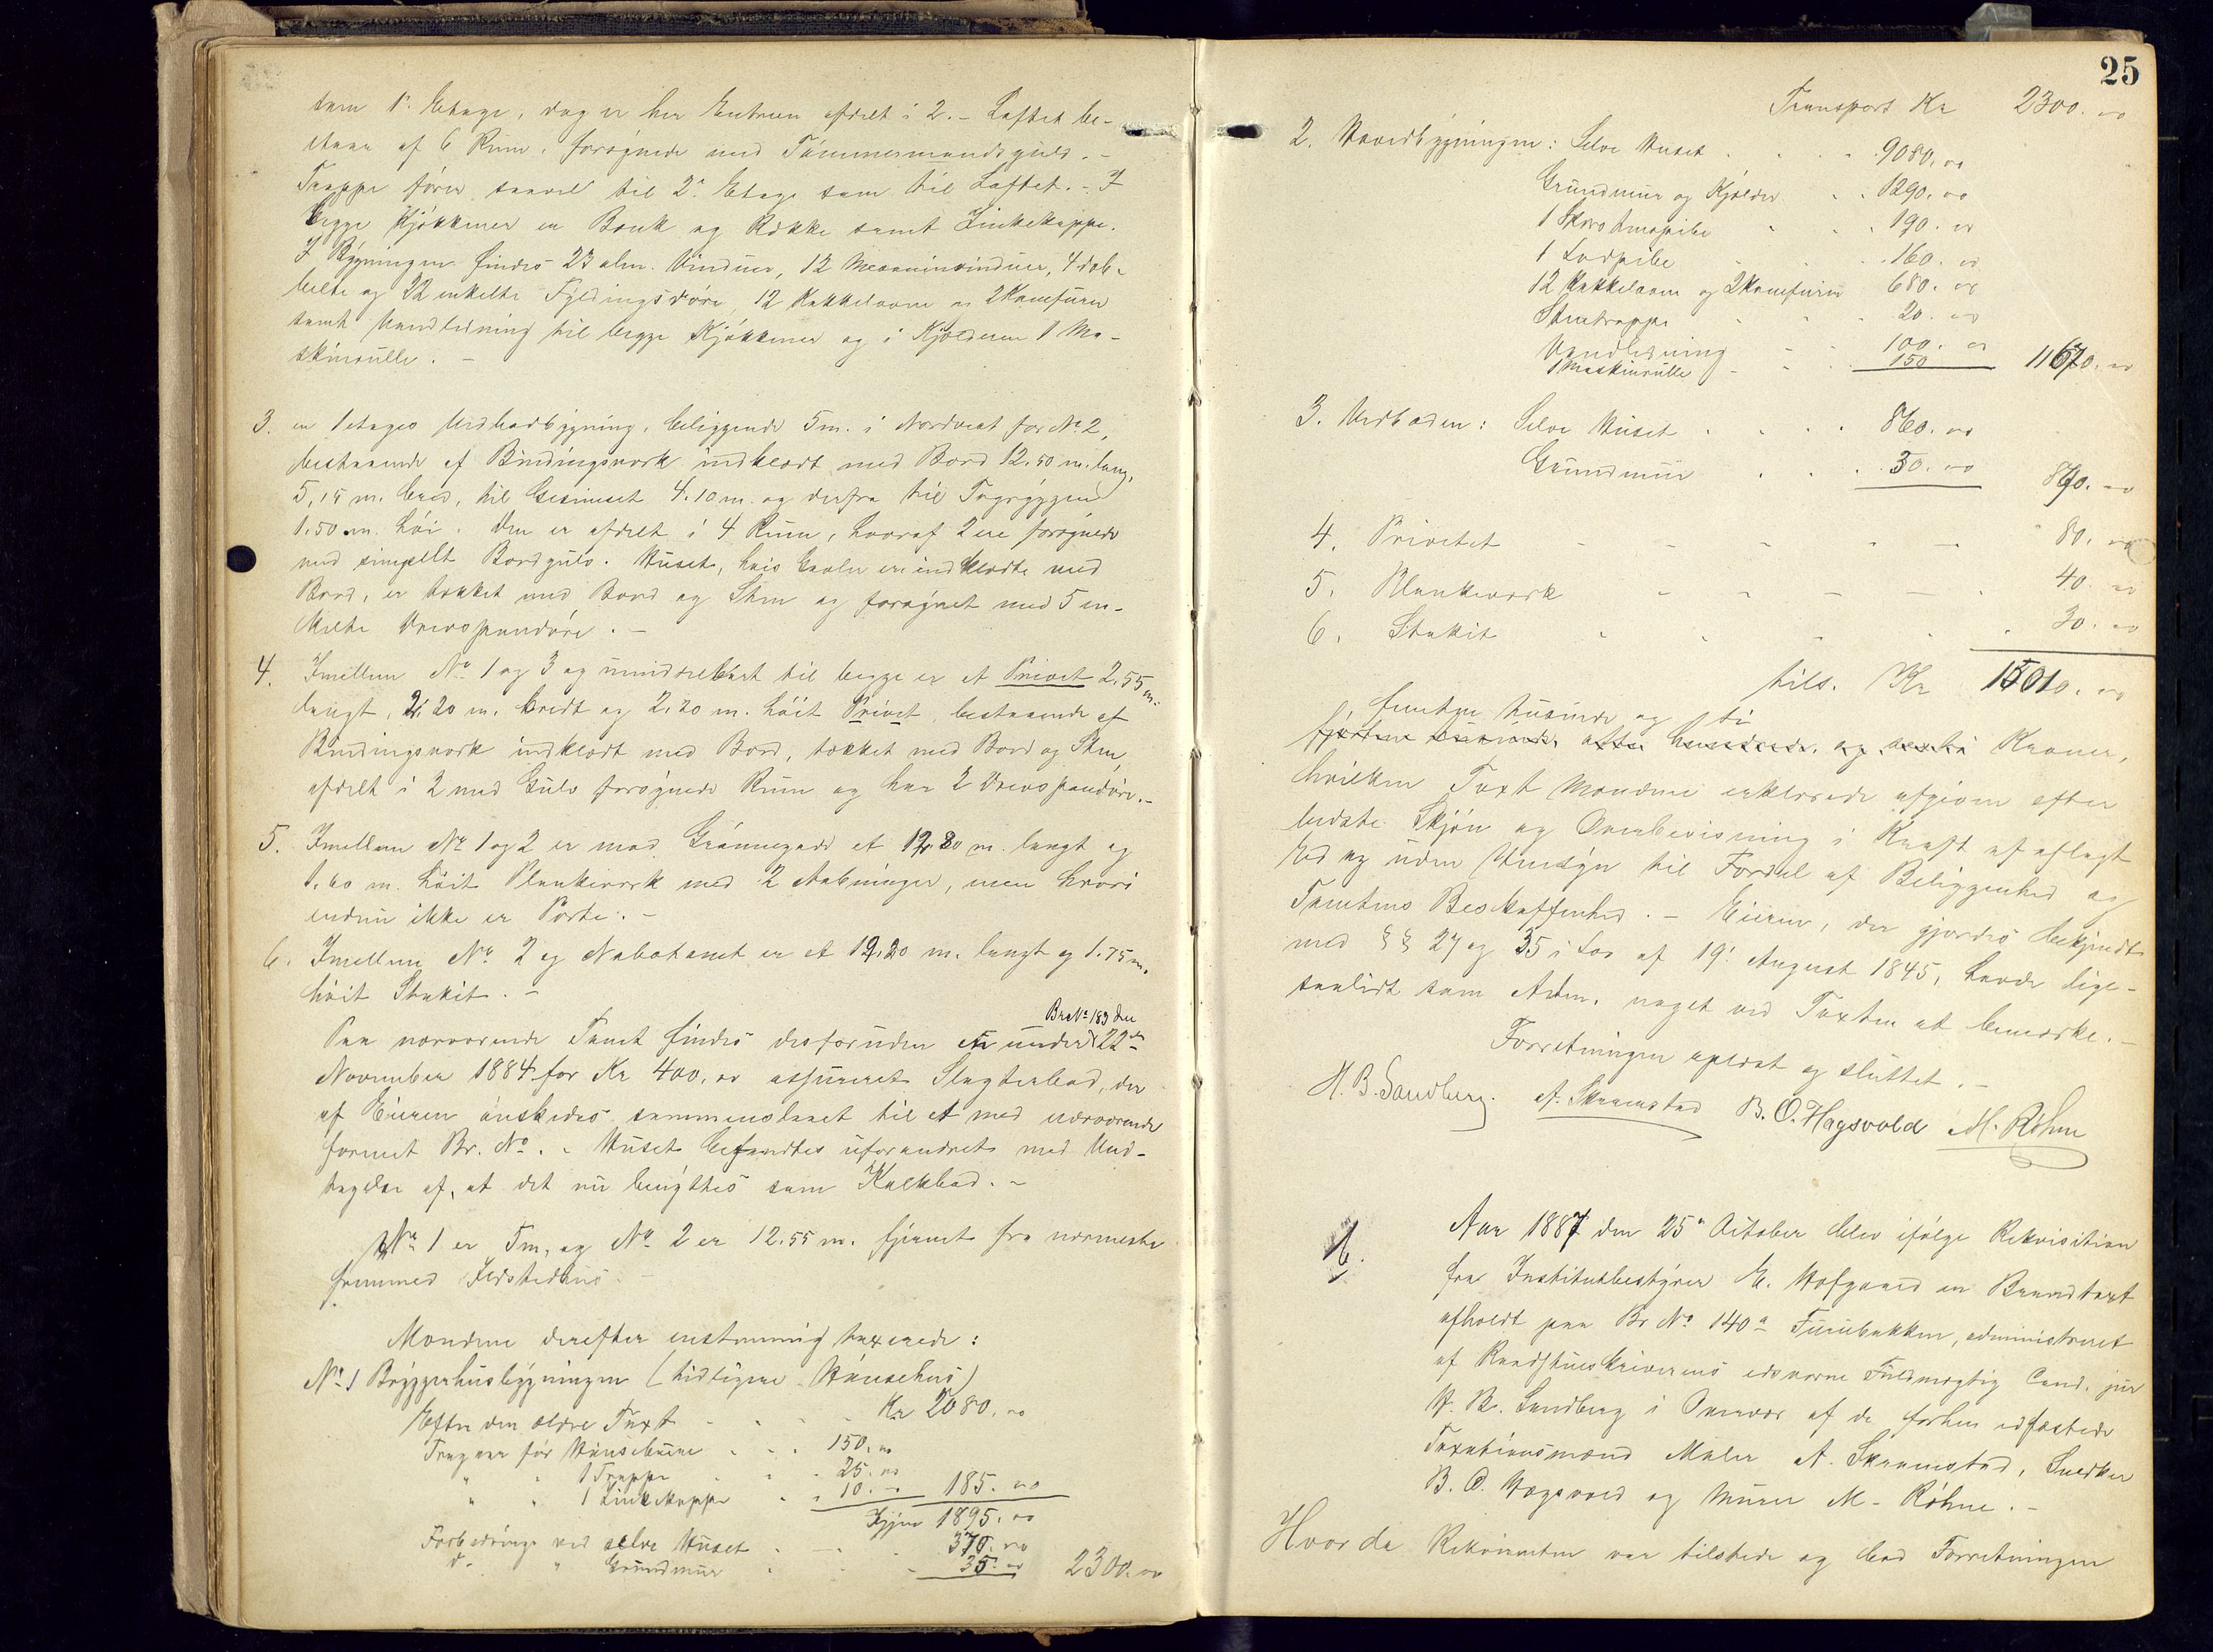 som 1e Etage, dog er her Entreen afdelt i 2. – Loftet be-
staar af 6 Rum, forsynede med Tømmermandsgulv. –
Trappe fører saavel til 2n Etage som til Loftet. – I
begge Kjøkkener en Bænk og Række samt Zinkekappe.
I Bygningen findes 23 alm. Vinduer, 12 Mezaninvinduer, 4 dob-
belte og 22 enkelte Fyldingsdøre, 12 Kakkelovne og 2 Komfurer
samt Vandledning til begge Kjøkkener og i Kjælderen 1 Ma-
skinrulle. –
3. en 1 etages Vedbodbygning, beliggende 5 m. i Nordvest for No 2,
bestaaende af Bindingsværk indklædt med Bord 12.50 m. lang,
5,15 m. bred, til Gesimset 4.10 m. og derfra til Tagryggen
1.50 m. høi. Den er afdelt i 4 Rum, hvoraf 2 ere forsynede
med simpelt Bordgulv. Huset, hvis Gavler ere indklædte med
Bord, er tækket med Bord og Sten og forsynet med 5 en-
kelte Drevspændøre. –
4. Imellem No 1 og 3 og umiddelbart til begge er et Privet 2.55 m.
langt, 2.20 m. bredt og 2.20 m. høit Privet, bestaaende af
Bindingsværk indklædt med Bord, tækket med Bord og Sten,
afdelt i 2 med Gulv forsynede Rum og har 2 Drevspændøre. –
5. Imellem No 1 og 2 er mod Grønnegade et 12.80 m. langt og
1.60 m. høit Plankeværk med 2 Aabninger, men hvori
endnu ikke er Porte. –
6. Imellem No 2 og Nabotomt er et 12.20 m. langt og 1.75 m.
høit Stakit. –
Br No 183 den
Paa nærværende Tomt findes desforuden en under 22de
November 1884 for Kr 400,00 assureret Slagterbod, der
af Eieren ønskedes sammenslaaet til et med nærværende
forenet Br. No. – Huset befandtes uforandret med Und-
tagelse af, at det nu benyttes som Kalkbod. –
No 1 er 5 m, og No 2 er 12.55 m. fjernet fra nærmeste
fremmed Ildstedhus. –
Mændene derefter enstemmig taxerede:
No 1 Bryggerhusbygningen (tidligere Hønsehus)
Efter den ældre Taxt Kr 2080.00
Fragaar for Hønseburene 150.00
" " 1 Trappe 25.00
" " 1 Zinkekappe 10.00 185.00
Igjen 1895.00
Forbedring ved selve Huset 370.00
do " Grundmur 35.00 2300.00
25
Transport Kr 2300.00
2. Hovedbygningen: Selve Huset 9080.00
Grundmur og Kjælder 1290.00
1 Skorstenspibe 190.00
1 Lodpibe 160.00
12 Kakkelovne og 2 Komfurer 680.00
Stentrappe 20.00
Vandledning 100.00
1 Maskinrulle 150 11670.00
3. Vedboden: Selve Huset 860.00
Grundmur 30.00 890.00
4. Privetet 80.00
5. Plankeværk 40.00
6. Stakit 30.00
tils. Kr 15010.00
femten tusinde og ti
fjorten tusinde otte hundrede og sexti Kroner,
hvilken Taxt Mændene erklærede afgiven efter
bedste Skjøn og Overbevisning i Kraft af aflagt
Ed og uden Hensyn til Fordel af Beliggenhed og
Tomtens Beskaffenhed. – Eieren, der gjordes bekjendt
med §§ 27 og 35 i Lov af 19e August 1845, havde lige-
saalidt som Adm. noget ved Taxten at bemærke. –
Forretningen oplæst og sluttet. –
H. B. Sandberg. A. Skramstad B. O. Hagsvold M. Røhne
Aar 1887 den 25e October blev ifølge Rekvisition
fra Institutbestyrer E. Hofgaard en Brandtaxt
afholdt paa Br No 140a Furubakken, administreret
af Raadstueskriverens edsvorne Fuldmægtig Cand. jur
H. B. Sandberg i Overvær af de forhen edfæstede
Taxationsmænd Maler A. Skramstad, Snedker
B. O. Hagsvold og Murer M. Røhne. –
Hvor da Rekvirenten var tilstede og bad Forretningen